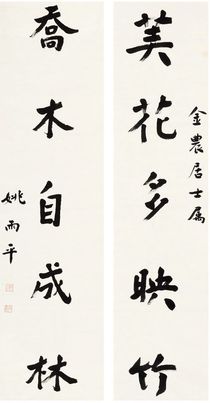 芙花多映竹
金農居士屬
喬木自成林
姚雨平